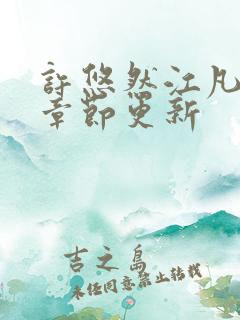 許悠然江凡
章節更新
吉之島
未任同意禁止转载